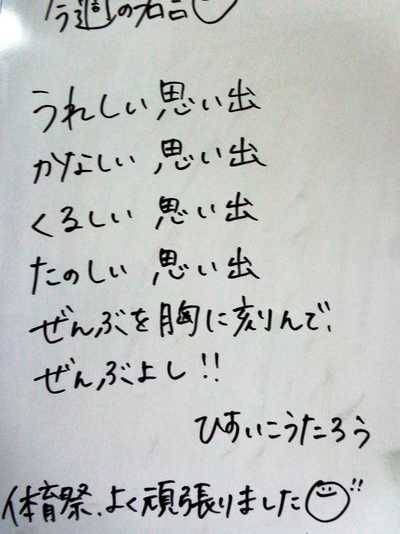 今週の名言
うれしい思い出
かなしい思い出
くるしい思い出
たのしい思い出
ぜんぶを胸に刻んで、
ぜんぶよし!!
ひすいこうたろう
体育祭、よく頑張りました!!